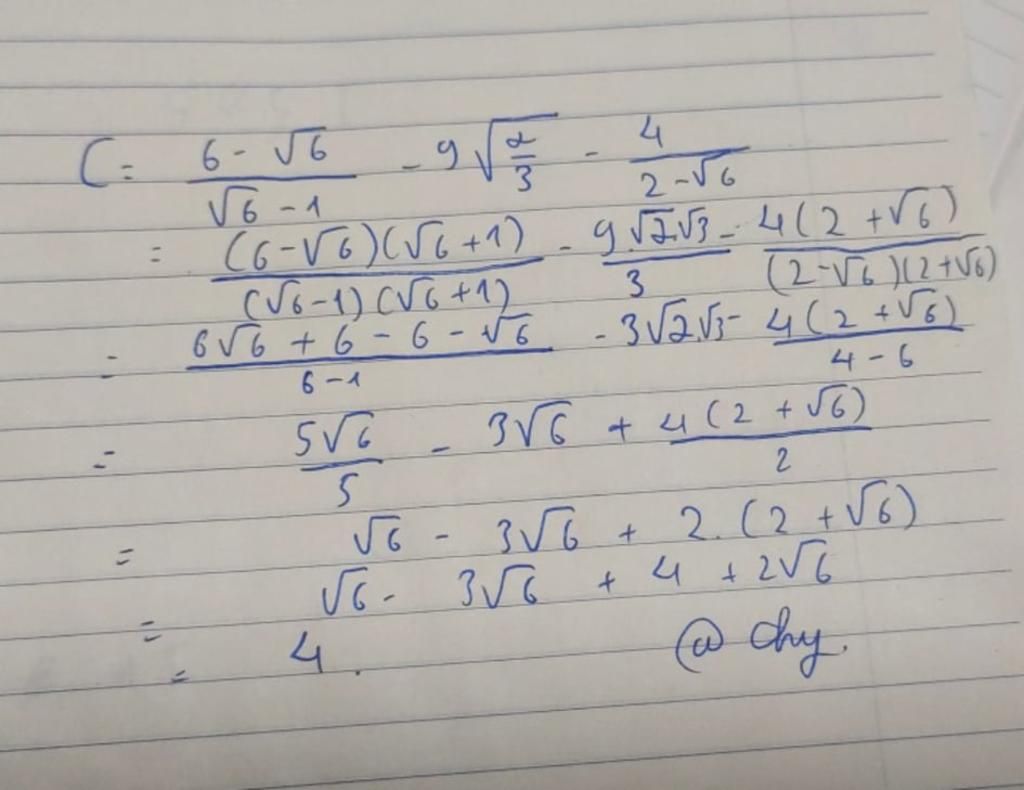 C = \frac{6 - \sqrt{6}}{\sqrt{6} - 1} - 9\sqrt{\frac{2}{3}} - \frac{4}{2 - \sqrt{6}}
= \frac{(6 - \sqrt{6})(\sqrt{6} + 1)}{(\sqrt{6} - 1)(\sqrt{6} + 1)} - \frac{9.\sqrt{2}.\sqrt{3}}{3} - \frac{4(2 + \sqrt{6})}{(2 - \sqrt{6})(2 + \sqrt{6})}
= \frac{6\sqrt{6} + 6 - 6 - \sqrt{6}}{6 - 1} - 3\sqrt{2}.\sqrt{3} - \frac{4(2 + \sqrt{6})}{4 - 6}
= \frac{5\sqrt{6}}{5} - 3\sqrt{6} + \frac{4(2 + \sqrt{6})}{2}
= \sqrt{6} - 3\sqrt{6} + 2.(2 + \sqrt{6})
= \sqrt{6} - 3\sqrt{6} + 4 + 2\sqrt{6}
= 4.
@ chy.